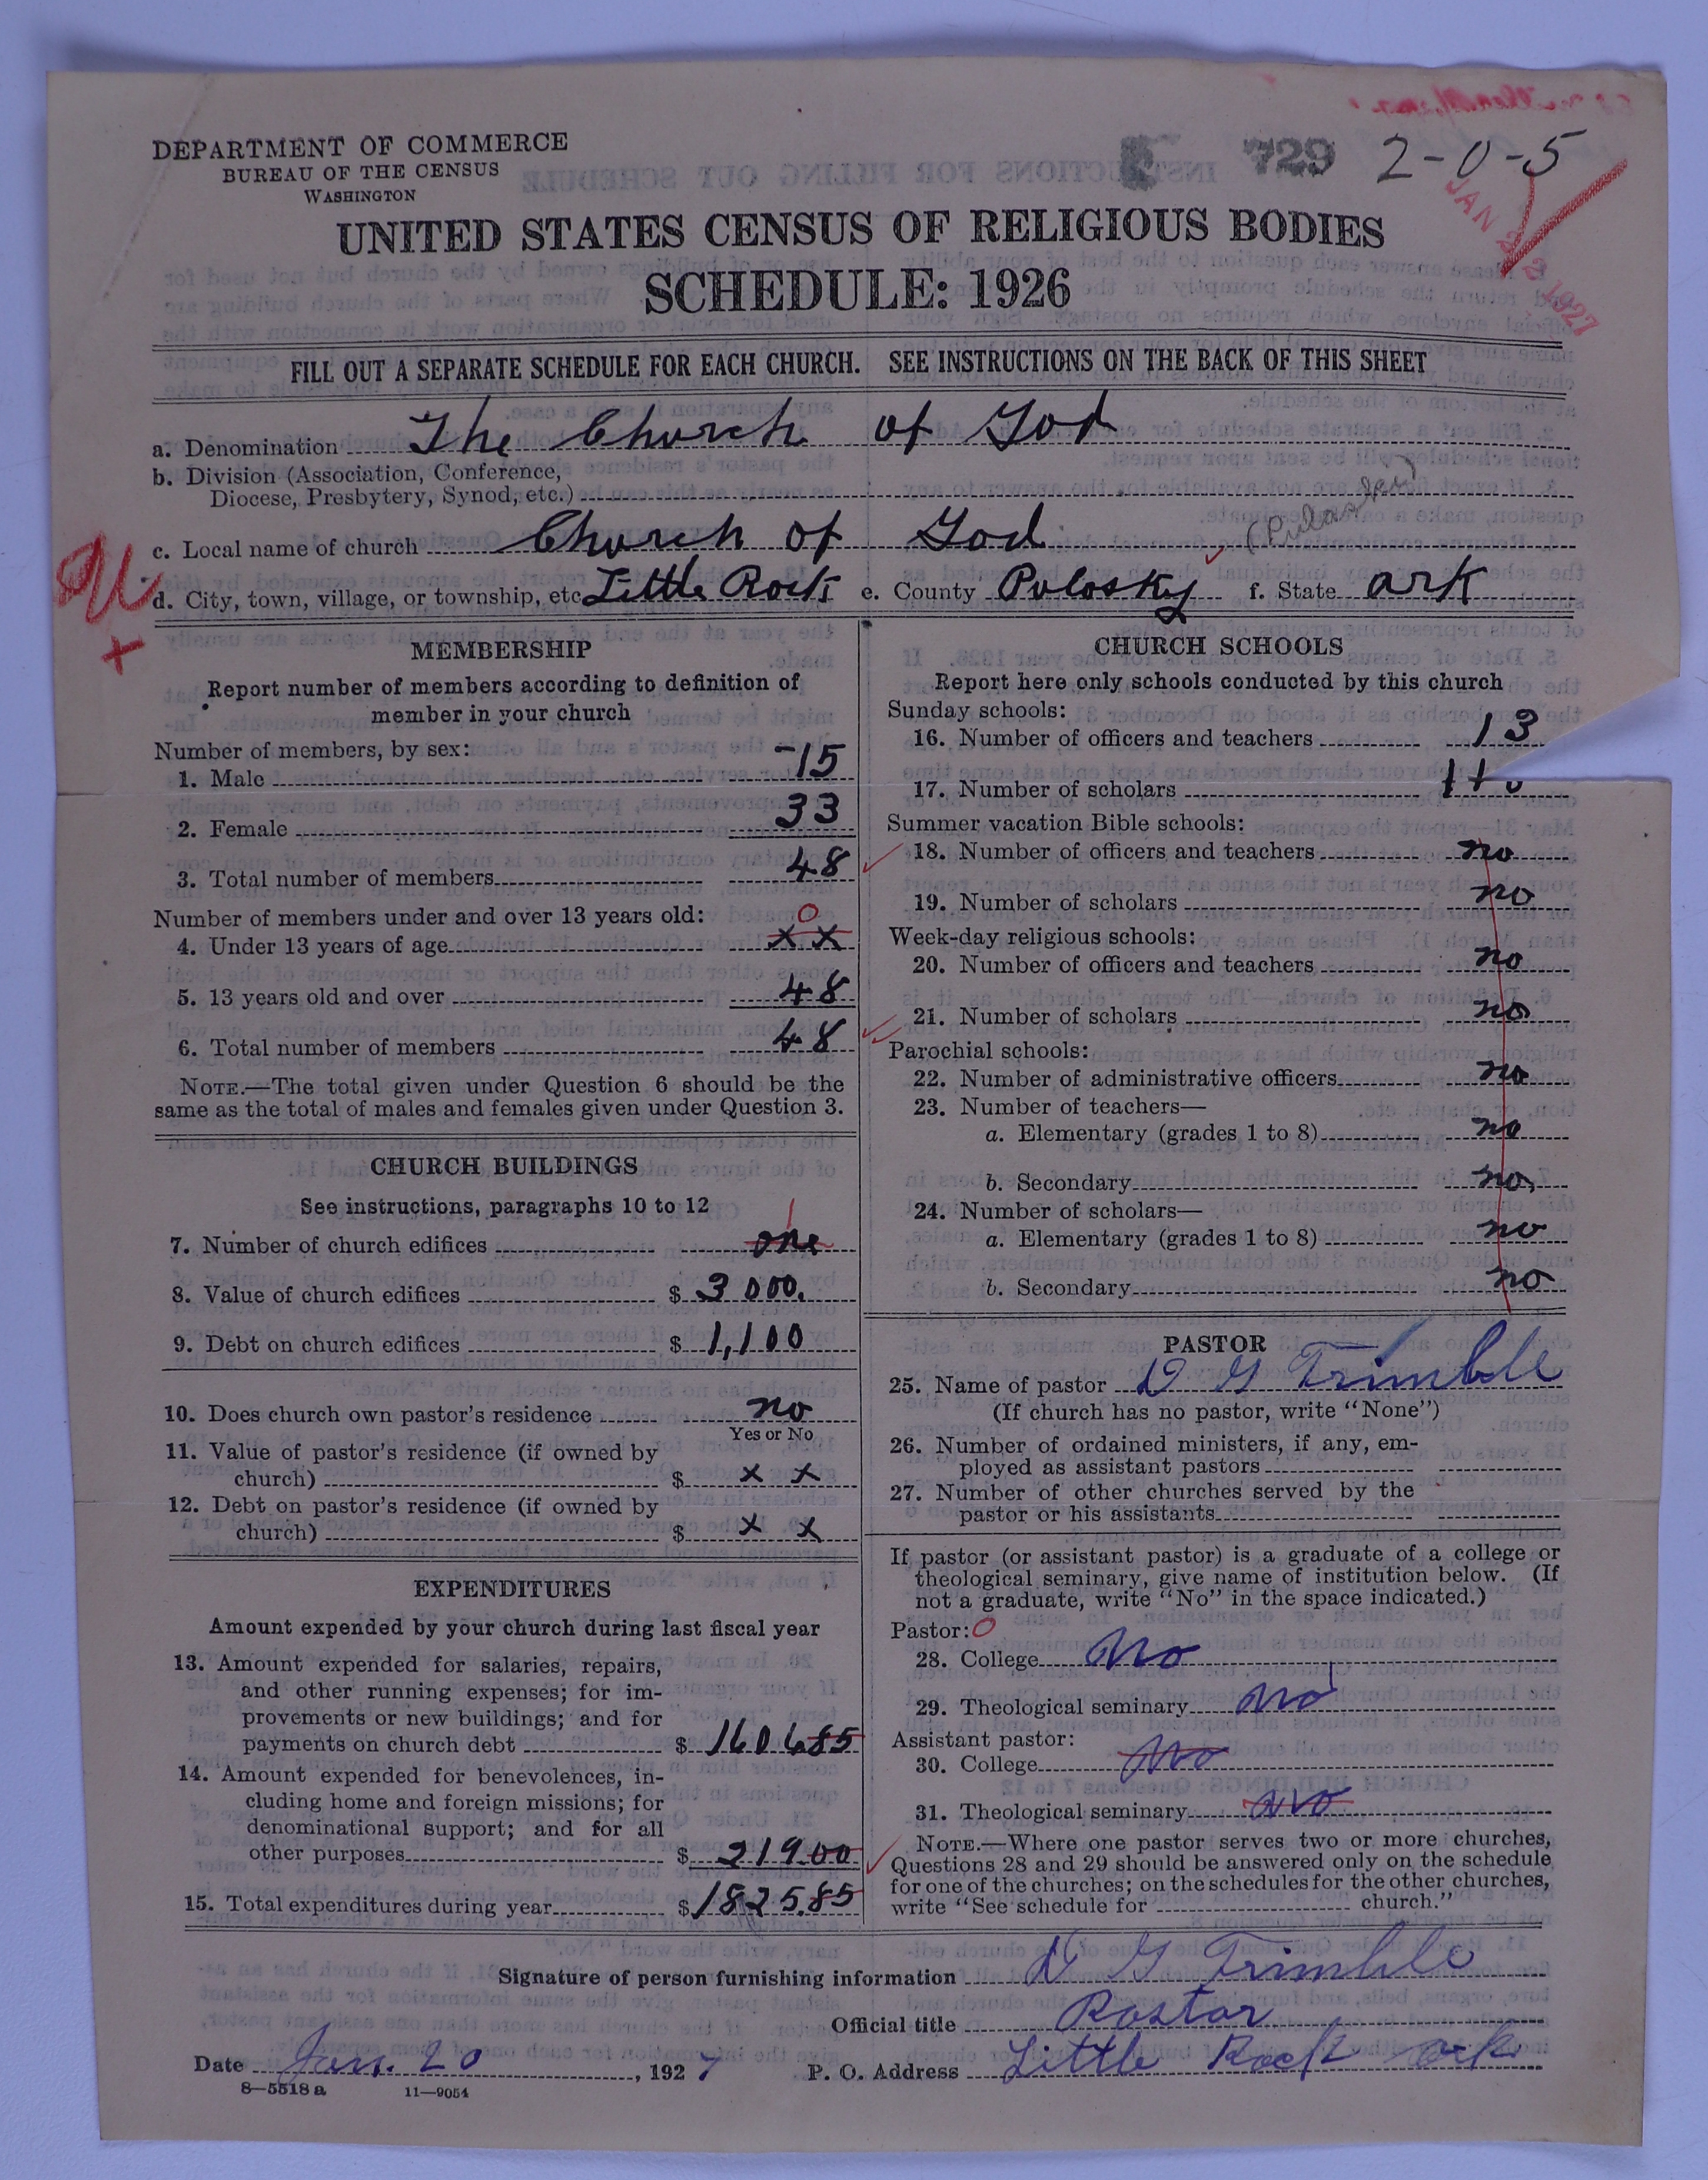 DEPARTMENT OF COMMERCE
BUREAU OF THE CENSUS
WASHINGTON
729 2-0-5
UNITED STATES CENSUS OF RELIGIOUS BODIES
SCHEDULE: 1926
FILL OUT A SEPARATE SCHEDULE FOR EACH CHURCH. SEE INSTRUCTIONS ON THE BACK OF THIS SHEET
a. Denomination The Church of God
b. Division (Association, Conference,
Diocese, Presbytery, Synod, etc.)
c. Local name of church Church of God (Pulaski)
d. City, town, village, or township, etc Little Rock e. County Polosky f. State ark
MEMBERSHIP
Report number of members according to definition of
member in your church
Number of members, by sex:
1. Male 15
2. Female 33
3. Total number of members 48
Number of members under and over 13 years old: 0
4. Under 13 years of age x x
5. 13 years old and over 48
6. Total number of members 48
NOTE.—The total given under Question 6 should be the
same as the total of males and females given under Question 3.
CHURCH BUILDINGS
See instructions, paragraphs 10 to 12
1
7. Number of church edifices one
8. Value of church edifices $ 3000.
9. Debt on church edifices $ 1,100
10. Does church own pastor's residence no
Yes or No
11. Value of pastor's residence (if owned by
church) $ x x
12. Debt on pastor's residence (if owned by
church) $ x x
EXPENDITURES
Amount expended by your church during last fiscal year
13. Amount expended for salaries, repairs,
and other running expenses; for im-
provements or new buildings; and for
payments on church debt $ 1606 85
14. Amount expended for benevolences, in-
cluding home and foreign missions; for
denominational support; and for all
other purposes $ 219 00
15. Total expenditures during year $ 1825.85
CHURCH SCHOOLS
Report here only schools conducted by this church
Sunday schools:
16. Number of officers and teachers 13
17. Number of scholars
Summer vacation Bible schools:
18. Number of officers and teachers no
19. Number of scholars no
Week-day religious schools:
20. Number of officers and teachers no
21. Number of scholars no
Parochial schools:
22. Number of administrative officers no
23. Number of teachers—
a. Elementary (grades 1 to 8) no
b. Secondary no,
24. Number of scholars—
a. Elementary (grades 1 to 8) no
b. Secondary no
PASTOR
25. Name of pastor D G Trimble
(If church has no pastor, write "None")
26. Number of ordained ministers, if any, em-
ployed as assistant pastors
27. Number of other churches served by the
pastor or his assistants
If pastor (or assistant pastor) is a graduate of a college or
theological seminary, give name of institution below. (If
not a graduate, write "No" in the space indicated.)
Pastor: 0
28. College No
29. Theological seminary No
Assistant pastor:
30. College No
31. Theological seminary No
NOTE.—Where one pastor serves two or more churches,
Questions 28 and 29 should be answered only on the schedule
for one of the churches; on the schedules for the other churches,
write "See schedule for church."
Signature of person furnishing information D G Trimble
Official title Pastor
Date Jan. 20, 1927 P. O. Address Little Rock ark
8—5518 a 11—9054